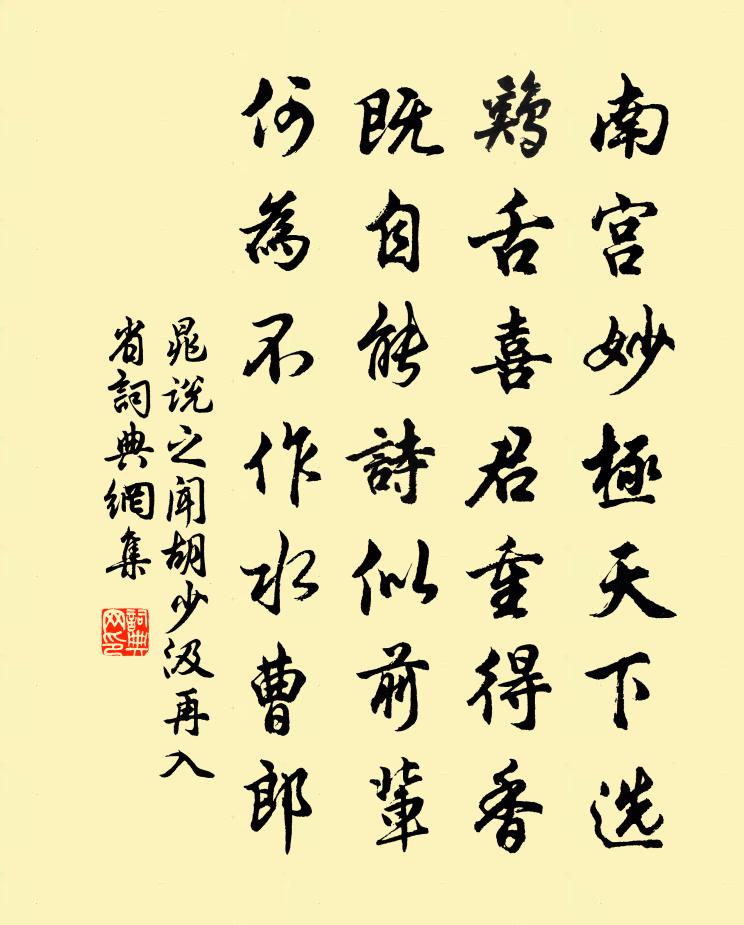 南宫妙極天下选
鷄舌喜君重得香
既自能詩似前輩
何為不作水曹郎
晁说之闻胡少汲再入
省詞典網集
詞典
网印